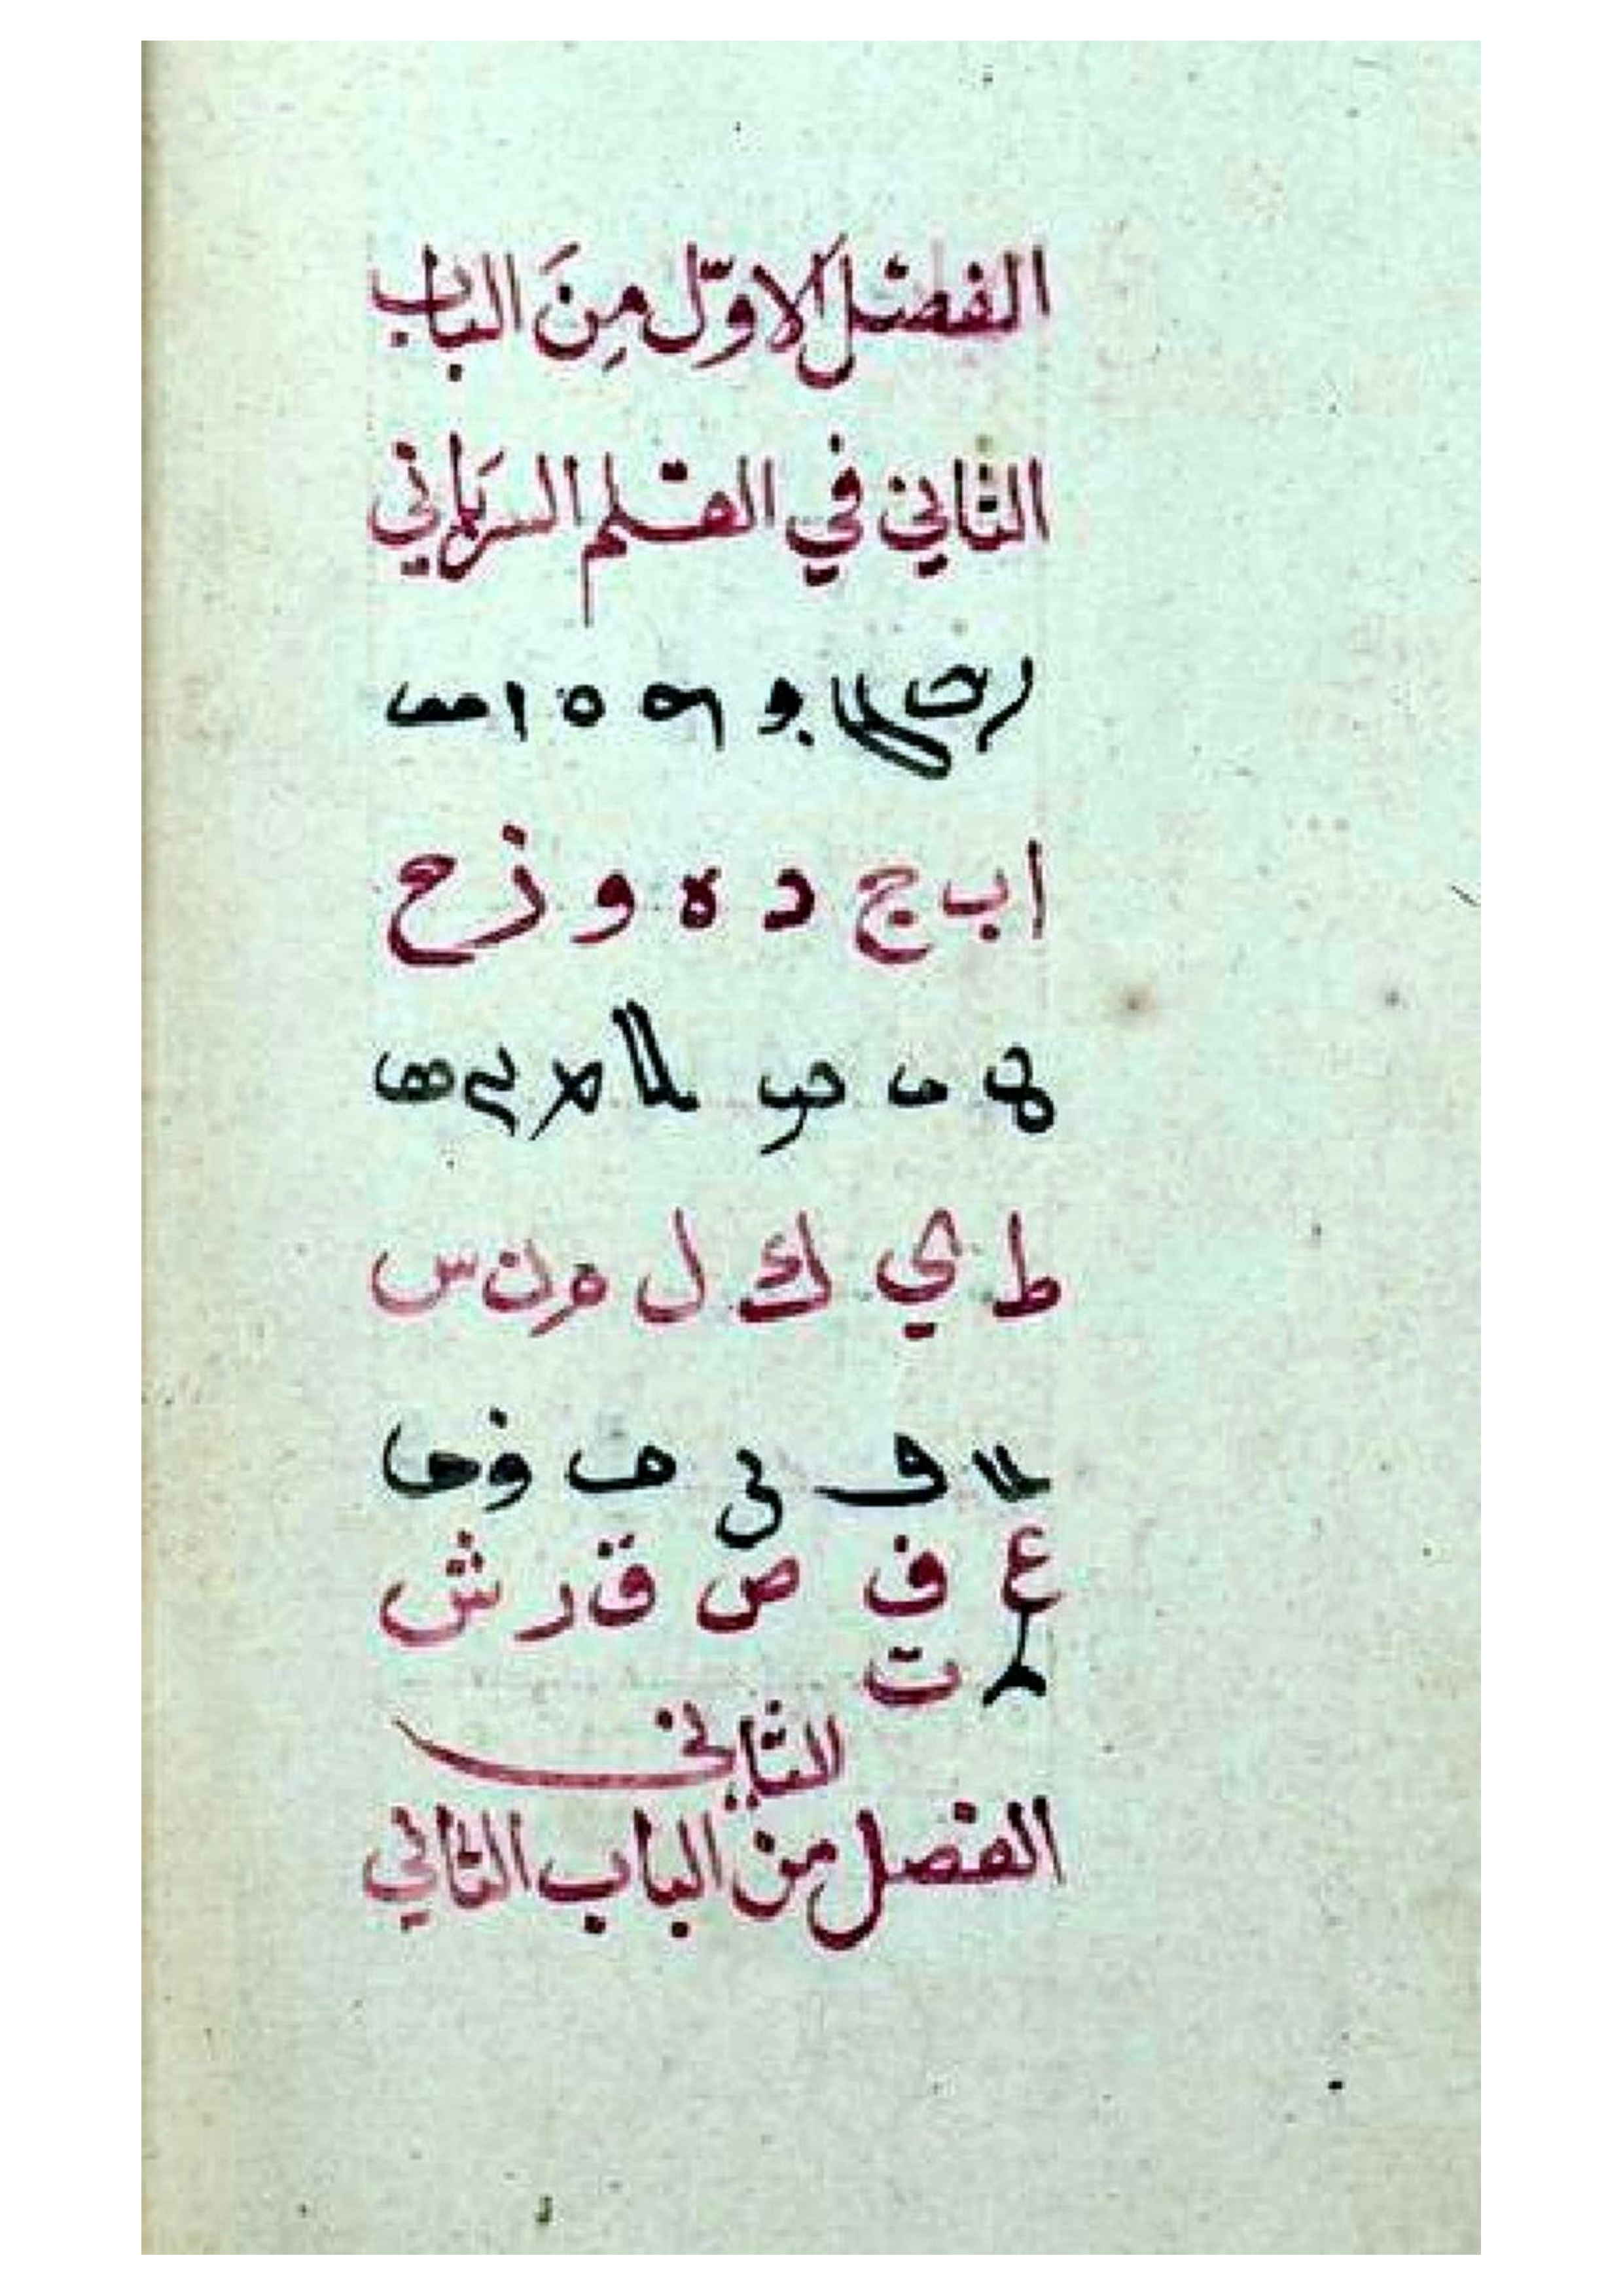 الفصل الاوّل مِنَ الباب
الثاني في القلم السريَاني
ܐ ܒ ܓ ܕ ܗ ܘ ܙ ܚ
ا ب ج د ه و ز ح
ܛ ܝ ܟ ܠ ܡ ܢ ܣ
ط ي ك ل م ن س
ܥ ܦ ܨ ܩ ܪ ܫ
ع ف ص ق ر ش
ܬ ت
الثاني
الفصل من الباب الثاني